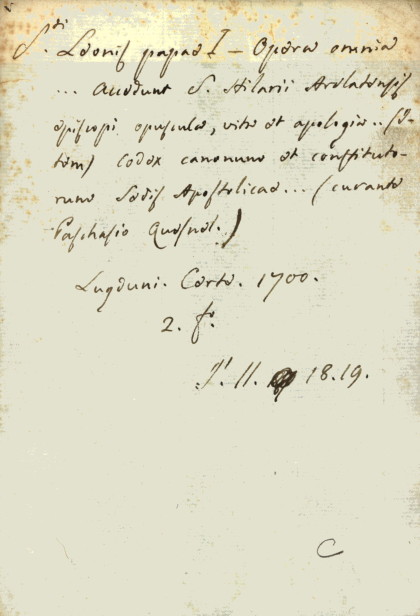 S.ti Leonis papae I – Opera omnia
... Accedunt S. Hilarii Arelatensis
episcopi opuscula, vita et apologia .. (i-
tem) Codex canonum et constituto-
rum Sedis Apostolicae ... (curante
Paschasio Quesnel.)
Lugduni. Certe. 1700.
2. f.o
II. 18.19.
C